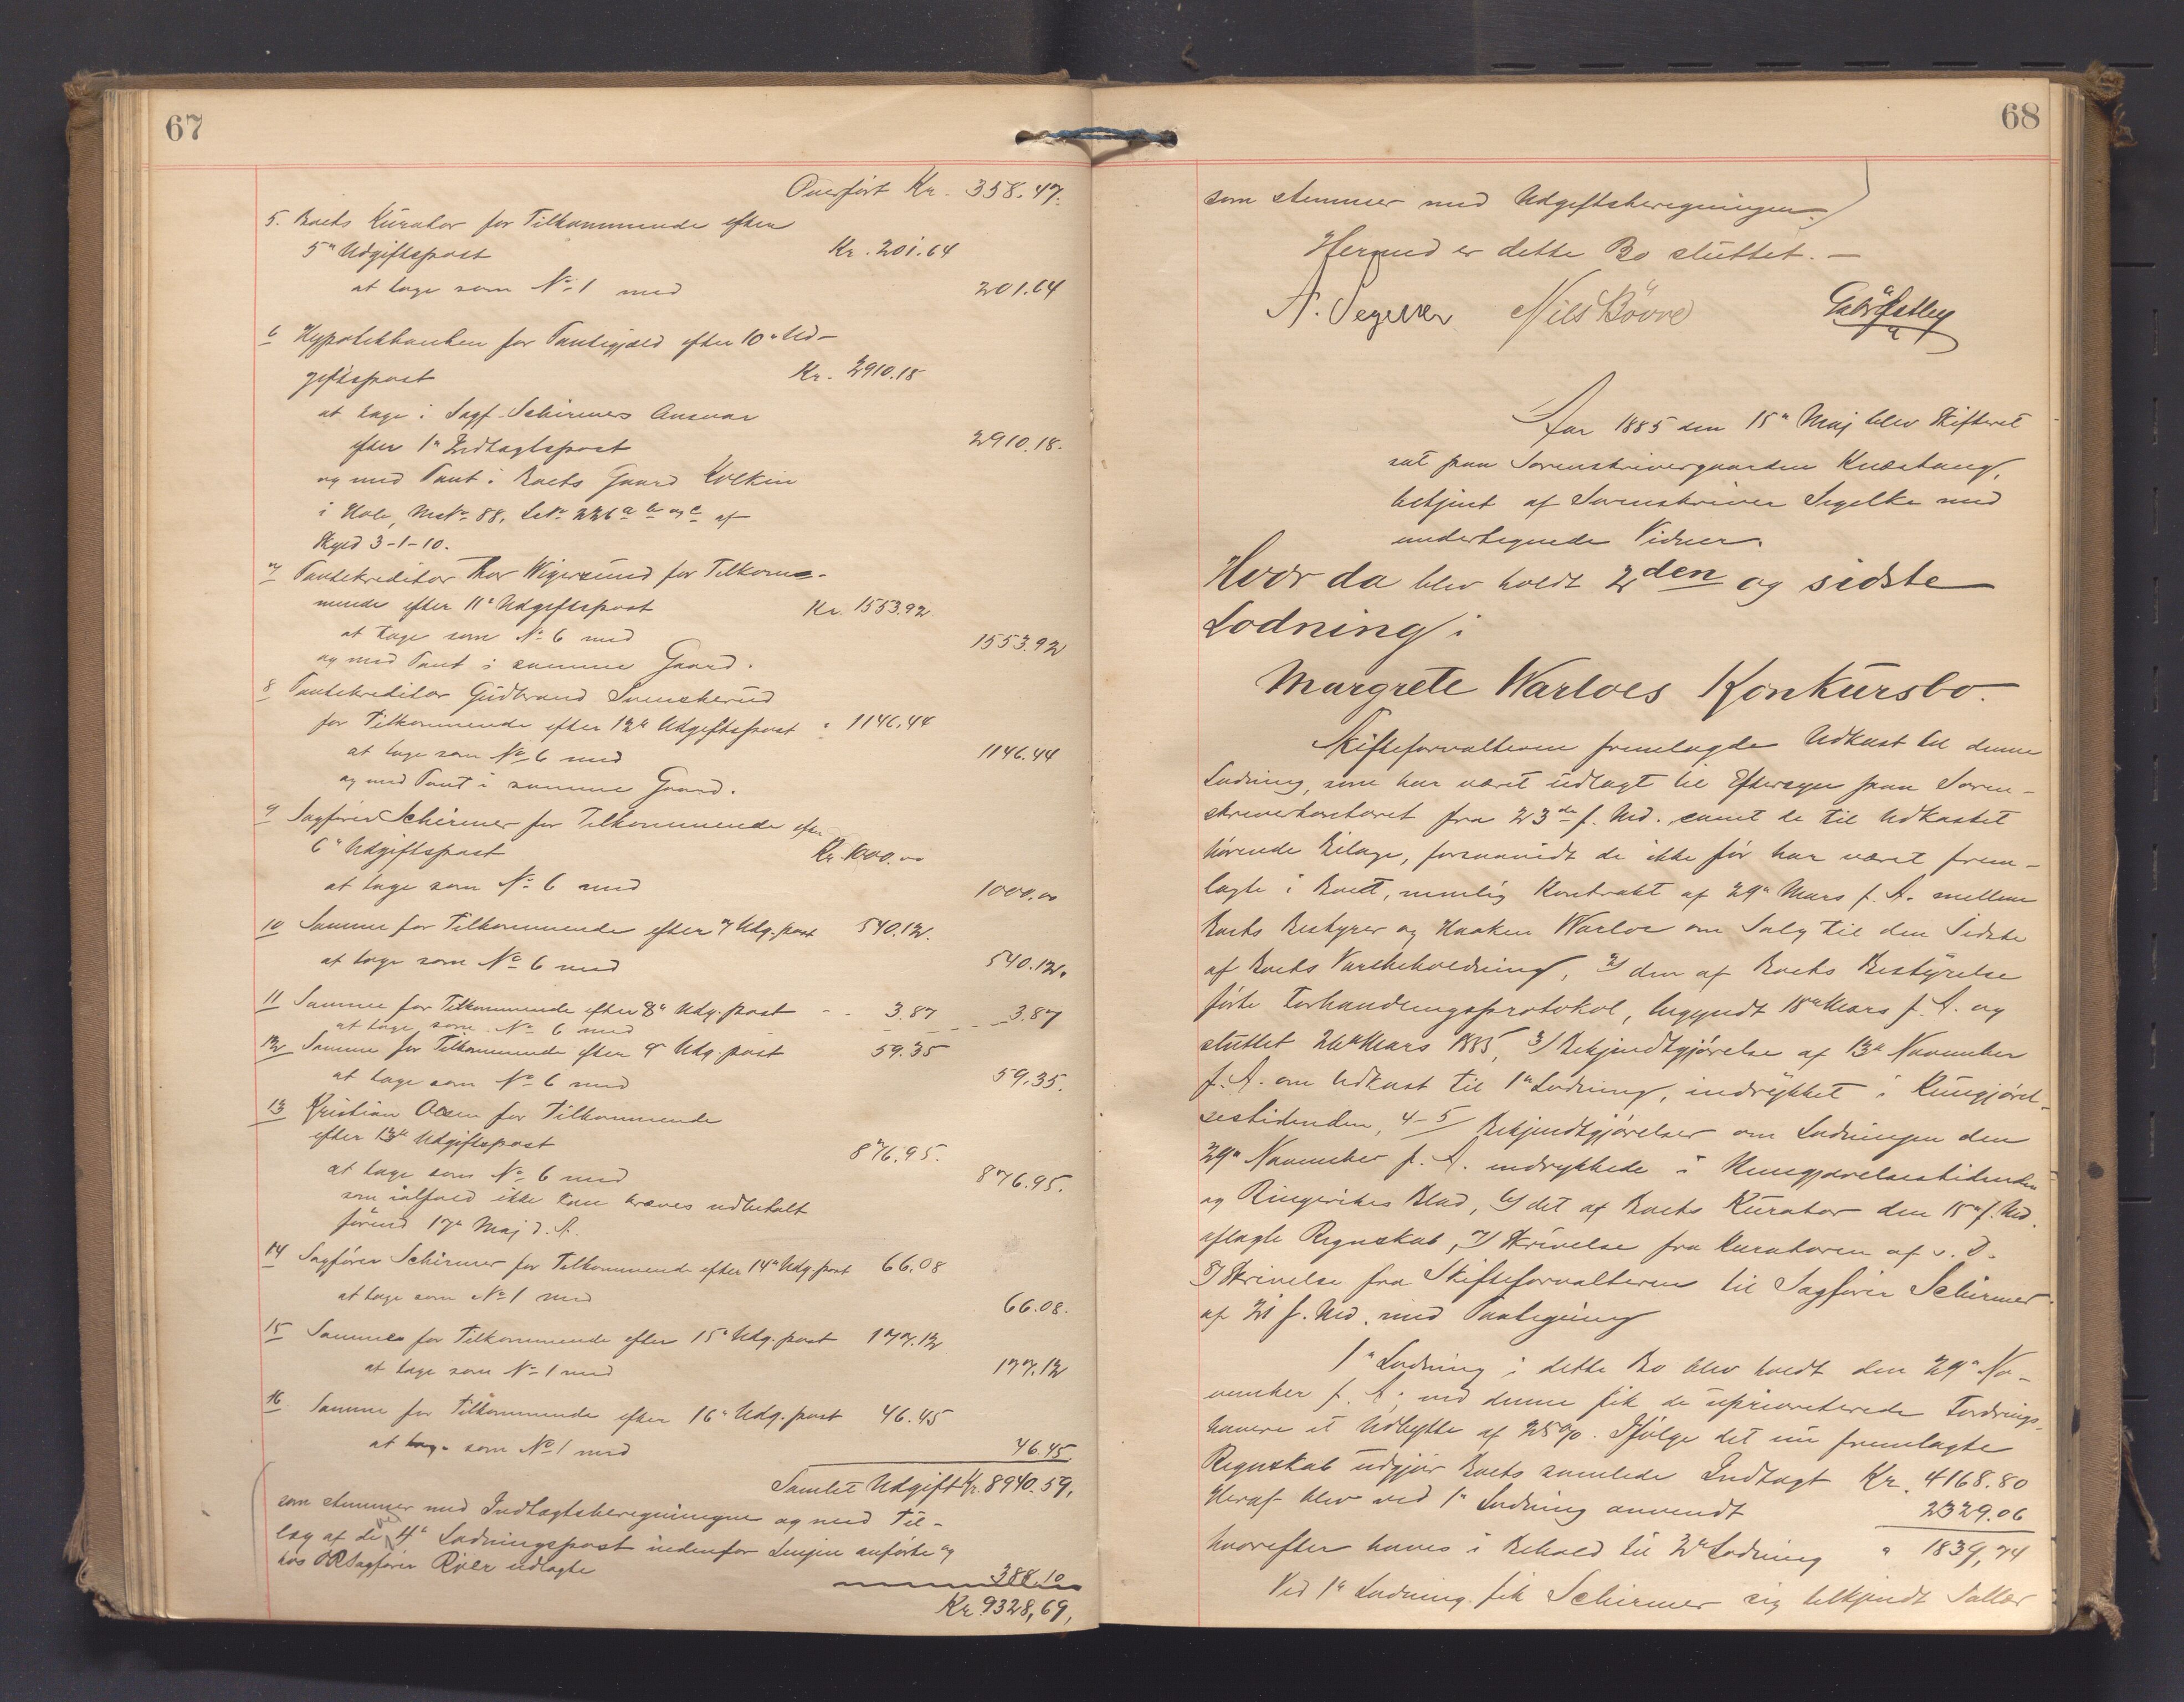 67
Overført Kr. 358.47.
5. Boets Kurator for Tilkommende efter
5te Udgiftspost Kr. 201.64
at tage som No 1 med 201.64
6 Hypotekbanken for Pantegjæld efter 10de Ud-
giftspost Kr. 2910.18
at tage i Sagf. Schirmers Ansvar
efter 1ste Indtægtspost 2910.18.
og med Pant i Boets Gaard
i Hole, Mno 88, Lno 226 a b og c af
Skyld 3-1-10.
7 Pantekreditor Thor Wigersund for Tilkom-
mende efter 11te Udgiftspost Kr. 1553.92
at tage som No 6 med 1553.92
og med Pant i samme Gaard.
8 Pantekreditor Gudbrand Svenskerud
for Tilkommende efter 12te Udgiftspost " 1146.44
at tage som No 6 med 1146.44
og med Pant i samme Gaard.
9 Sagfører Schirmer for Tilkommende efter
6te Udgiftspost Kr. 1000.00
at tage som No 6 med 1000.00
10 Samme for Tilkommende efter 7 Udg.post 540.12.
at tage som No 6 med 540.12.
11 Samme for Tilkommende efter 8de Udg.post - - 3.87 3.87
at tage som No 6 med
12 Samme for Tilkommende efter 9de Udg.post 59.35
at tage som No 6 med 59.35.
13 Kristian Olsen for Tilkommende
efter 13de Udgiftspost 876.95.
at tage som No 6 med 876.95.
som ialfald ikke kan kræves udbetalt
førend 17de Maj d. A.
14 Sagfører Schirmer for Tilkommende efter 14de Udg.post 66.08
at tage som No 1 med 66.08.
15 Samme for Tilkommende efter 15de Udg.post 177.12
at tage som No 1 med 177.12
16 Samme for Tilkommende efter 16de Udg.post 46.45
at tage som No 1 med 46.45
Samlet Udgift Kr. 8940.59.
som stemmer med Indtægtsberegningen og med Til-
læg af de ved 4de Lodningspost indenfor Linjen anførte og
hos ORSagfører Roll udlagte 388.10
Kr. 9328,69,
68
som stemmer med Udgiftsberegningen.
Hermed er dette Bo sluttet. —
Nils Bövre
Aar 1885 den 15de Maj blev Skifteret
sat paa Sorenskrivergaarden Knæstang,
betjent af Sorenskriver Segelke med
undertegnede Vidner.
Hvor da blev holdt 2den og sidste
Lodning i
Margrete Warloes Konkursbo.
Skifteforvalteren fremlagde Udkast til denne
Lodning, som har været udlagt til Eftersyn paa Soren-
skriverkontoret fra 23de f. Md. samt de til Udkastet
hørende Bilage, forsaavidt de ikke før har været frem-
lagte i Boet, nemlig Kontrakt af 29de Mars f. A. mellem
Boets Bestyrer og Haaken Warloe om Salg til den Sidste
af Boets Varebeholdning, 2/ den af Boets Bestyrelse
førte Forhandlingsprotokol, begyndt 18de Mars f. A. og
sluttet 26de Mars 1885, 3/ Bekjendtgjørelse af 13de November
f. A. om Udkast til 1ste Lodning, indrykket i Kungjørel-
sestidenden, 4-5/ Bekjendtgjørelser om Lodningen den
29de November f. A. indrykkede i Kungjørelsestidenden
og Ringerikes Blad, 6/ det af Boets Kurator den 18de f. Md.
aflagte Regnskab, 7/ Skrivelse fra Kuratoren af s. D.
8/ Skrivelse fra Skifteforvalteren til Sagfører Schirmer
af 21 f. Md. med Paategning
1ste Lodning i dette Bo blev holdt den 29de No-
vember f. A; ved denne fik de uprioriterede Fordrings-
havere et Udbytte af 25%. Ifølge det nu fremlagte
Regnskab udgjør Boets samlede Indtægt Kr. 4168.80
Heraf blev ved 1ste Lodning anvendt 2329.06
hvorefter haves i Behold til 2den Lodning " 1839,74
Ved 1ste Lodning fik Schirmer sig tilkjendt Salær